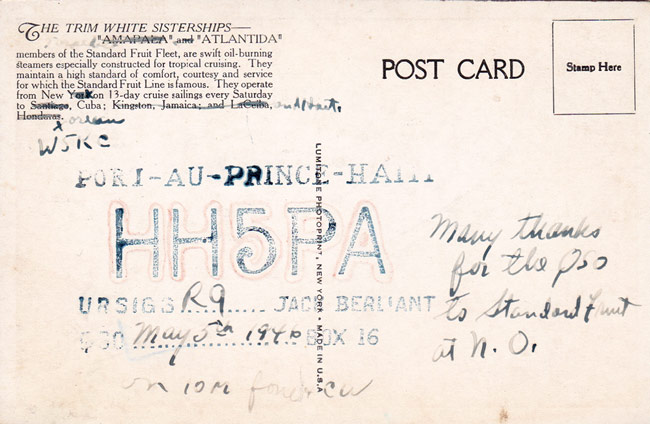 THE TRIM WHITE SISTERSHIPS—
"AMAPALA" and "ATLANTIDA"
members of the Standard Fruit Fleet, are swift oil-burning
steamers especially constructed for tropical cruising. They
maintain a high standard of comfort, courtesy and service
for which the Standard Fruit Line is famous. They operate
from New York on 13-day cruise sailings every Saturday
to Santiago, Cuba; Kingston, Jamaica; and LaCeiba,
Honduras.
POST CARD
Stamp Here
W5KC
PORT-AU-PRINCE-HAITI
HH5PA
UR SIGS R9 JACK BERLIANT
QSO May 5th 1946 BOX 16
on 10M fone
Many thanks
for the QSO
to Standard Fruit
at N.O.
LUMITONE PHOTOPRINT, NEW YORK • MADE IN U.S.A